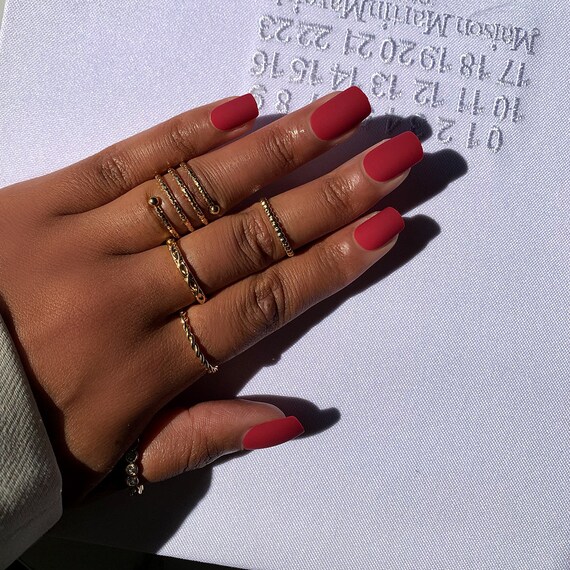 0 1 2 8 9
10 11 12 13 14 15 16
17 18 19 20 21 22 23
Maison MartinMargiela